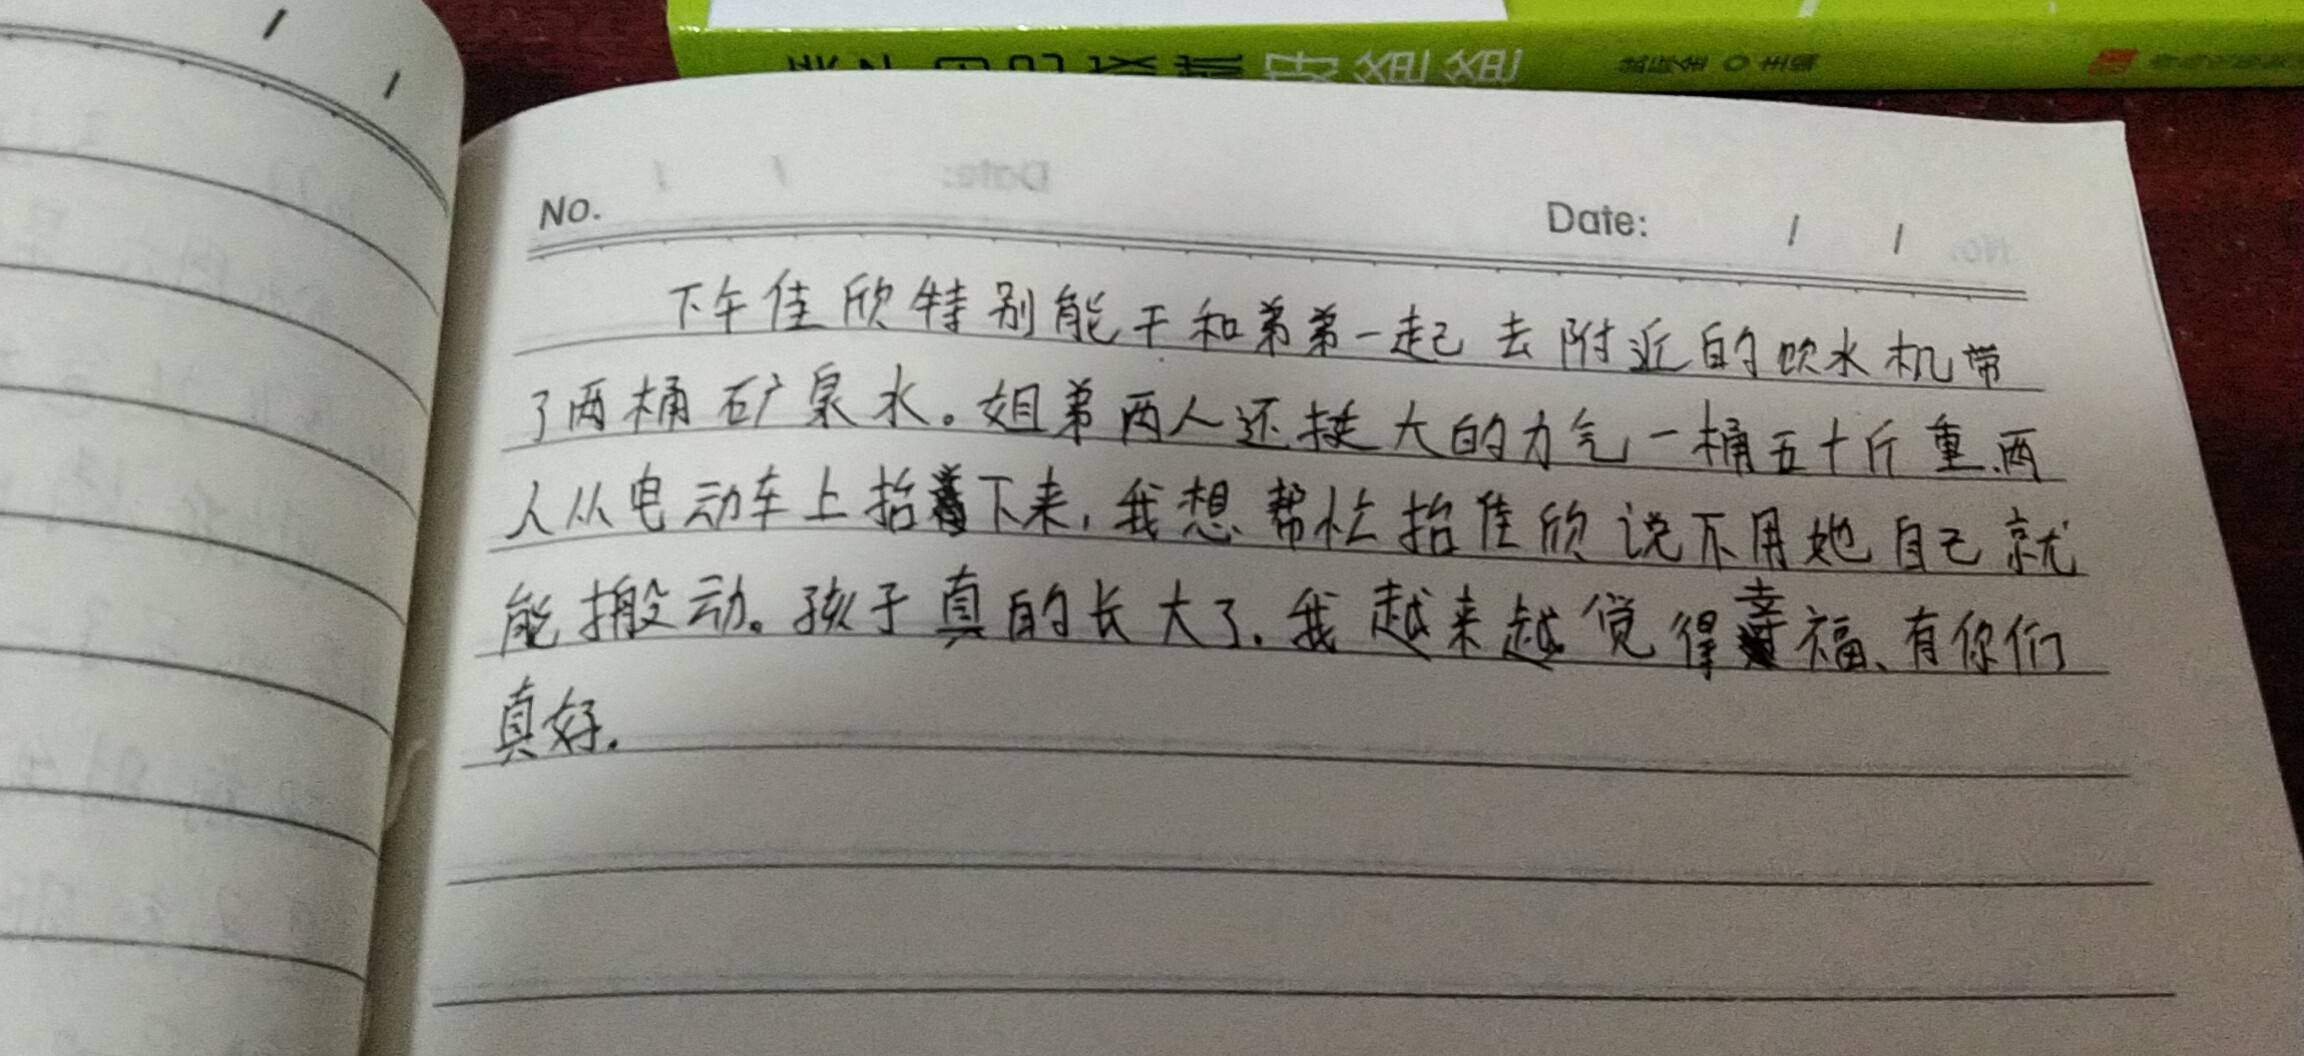 好爸爸
No. Date: / /
下午佳欣特别能干和弟弟一起去附近的饮水机带
了两桶矿泉水。姐弟两人还挺大的力气,一桶五十斤重、两
人从电动车上抬着下来,我想帮忙抬佳欣说不用她自己就
能搬动。孩子真的长大了.我越来越觉得幸福、有你们
真好.